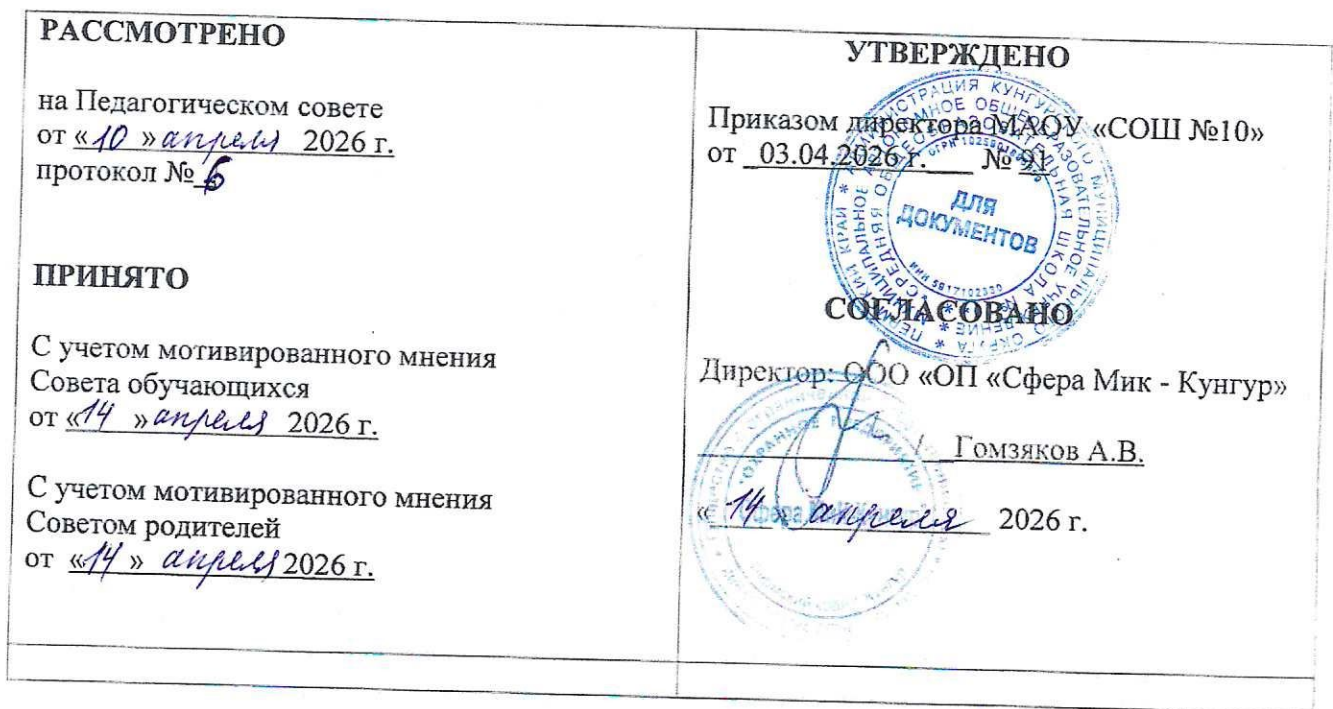 РАССМОТРЕНО
на Педагогическом совете
от «10 » апреля 2026 г.
протокол № 6
ПРИНЯТО
С учетом мотивированного мнения
Совета обучающихся
от «14 » апреля 2026 г.
С учетом мотивированного мнения
Советом родителей
от «14 » апреля 2026 г.
УТВЕРЖДЕНО
Приказом директора МАОУ «СОШ №10»
от 03.04.2026 г. № 91
ДЛЯ
ДОКУМЕНТОВ
СОГЛАСОВАНО
Директор: ООО «ОП «Сфера Мик - Кунгур»
/ Гомзяков А.В.
« 14 » апреля 2026 г.